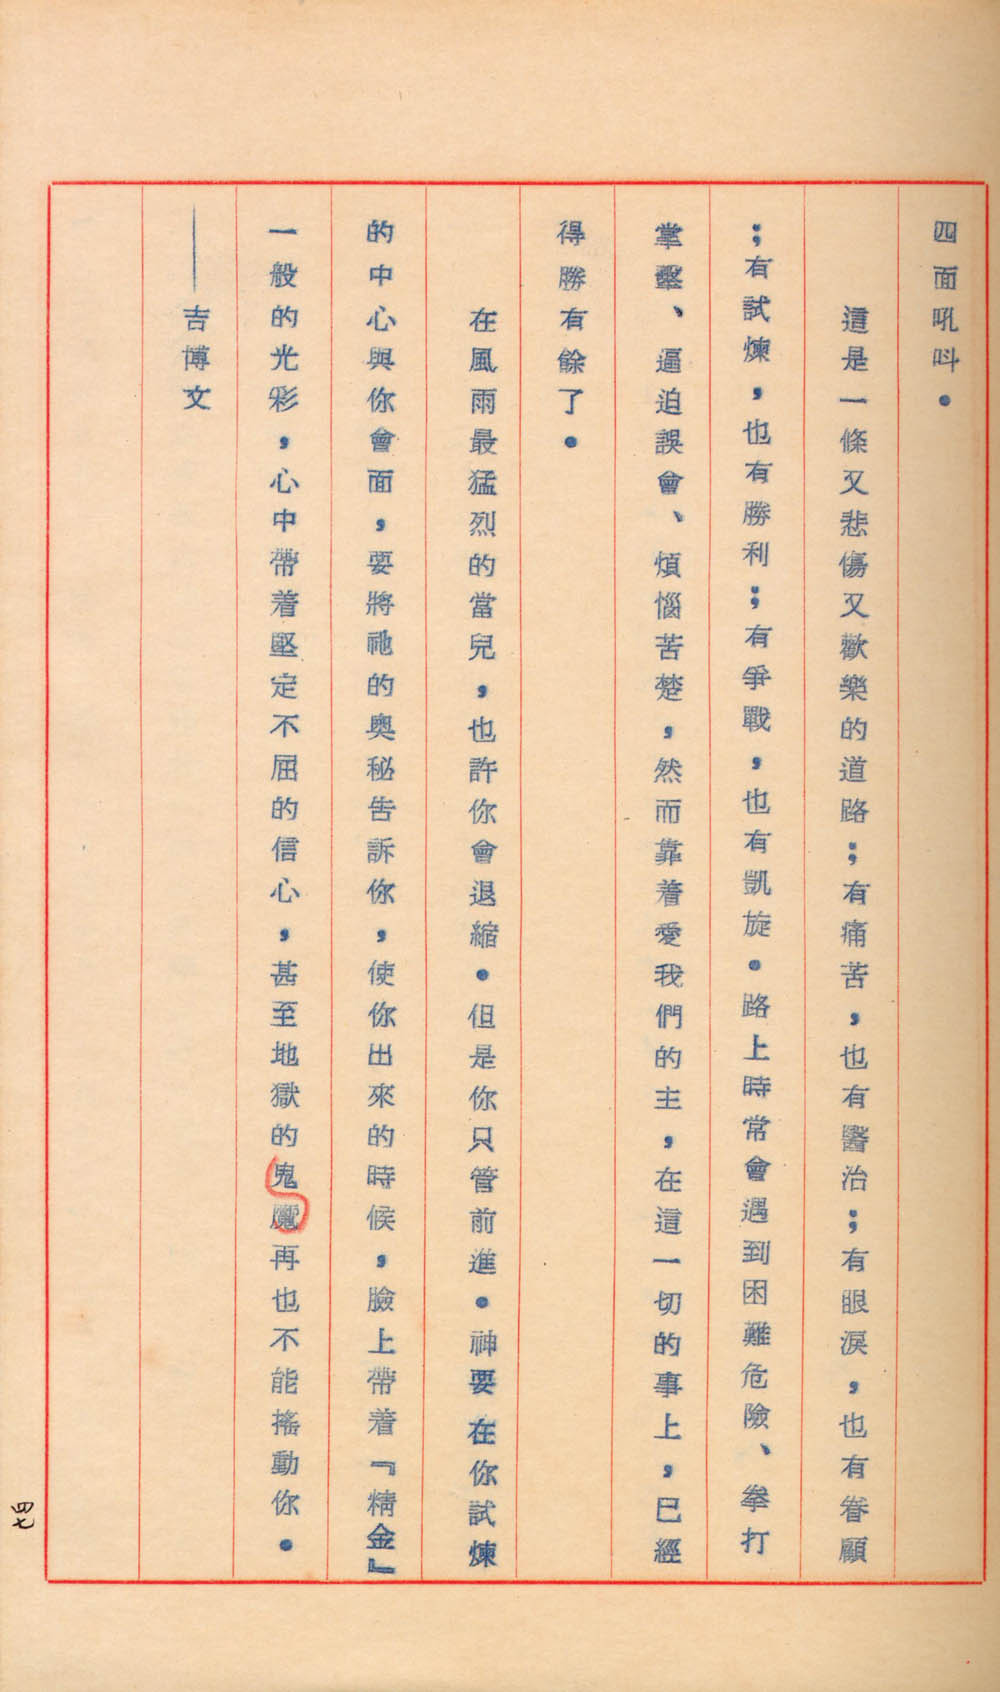 四面吼呌。
這是一條又悲傷又歡樂的道路；有痛苦，也有醫治；有眼淚，也有眷顧
；有試煉，也有勝利；有爭戰，也有凱旋。路上時常會遇到困難危險、拳打
掌擊、逼迫誤會、煩惱苦楚，然而靠着愛我們的主，在這一切的事上，已經
得勝有餘了。
在風雨最猛烈的當兒，也許你會退縮。但是你只管前進。神要在你試煉
的中心與你會面，要將祂的奧秘告訴你，使你出來的時候，臉上帶着『精金』
一般的光彩，心中帶着堅定不屈的信心，甚至地獄的鬼魔再也不能搖動你。
——吉博文
四七